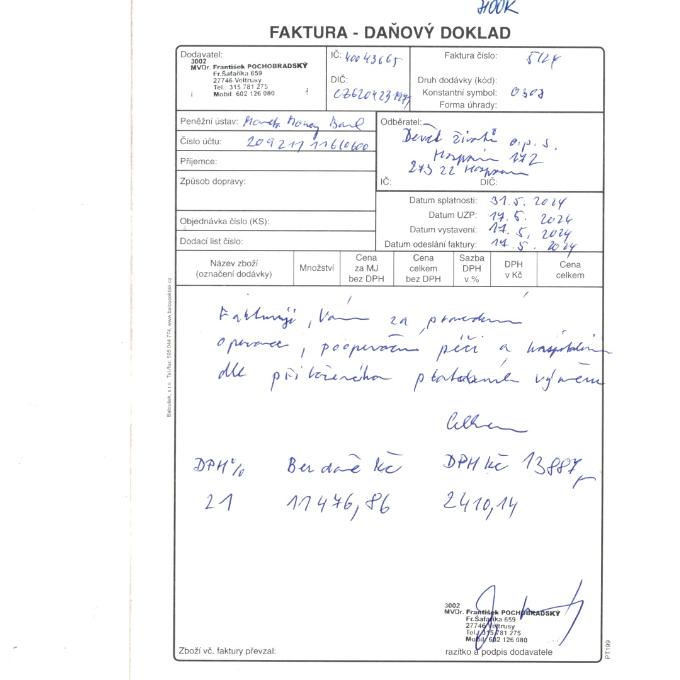 FAKTURA - DAŇOVÝ DOKLAD
Dodavatel:
3002
MVDr. František POCHOBRADSKÝ
Fr.Šafaříka 659
27746 Veltrusy
Tel.: 315 781 275
Mobil: 602 126 080
IČ: 40043665
DIČ:
Faktura číslo: 5124
Druh dodávky (kód):
Konstantní symbol: 0308
Forma úhrady:
Peněžní ústav: Moneta Money Bank
Číslo účtu:
Příjemce:
Způsob dopravy:
Objednávka číslo (KS):
Dodací list číslo:
Odběratel:
Devět životů o.p.s.
172
273 22
IČ: DIČ:
Datum splatnosti: 31.5. 2024
Datum UZP: 17.5. 2024
Datum vystavení: 17.5. 2024
Datum odeslání faktury: 17.5. 2024
Název zboží (označení dodávky)
Množství
Cena za MJ bez DPH
Cena celkem bez DPH
Sazba DPH v %
DPH v Kč
Cena celkem
Fakturuji Vám za provedenou
operace, pooperační péči a
dle přiloženého
Celkem
DPH % Bez daně Kč DPH Kč 13887,-
21 11476,86 2410,14
3002
MVDr. František POCHOBRADSKÝ
Fr.Šafaříka 659
27746 Veltrusy
Tel.: 315 781 275
Mobil: 602 126 080
Zboží vč. faktury převzal:
razítko a podpis dodavatele
PT199